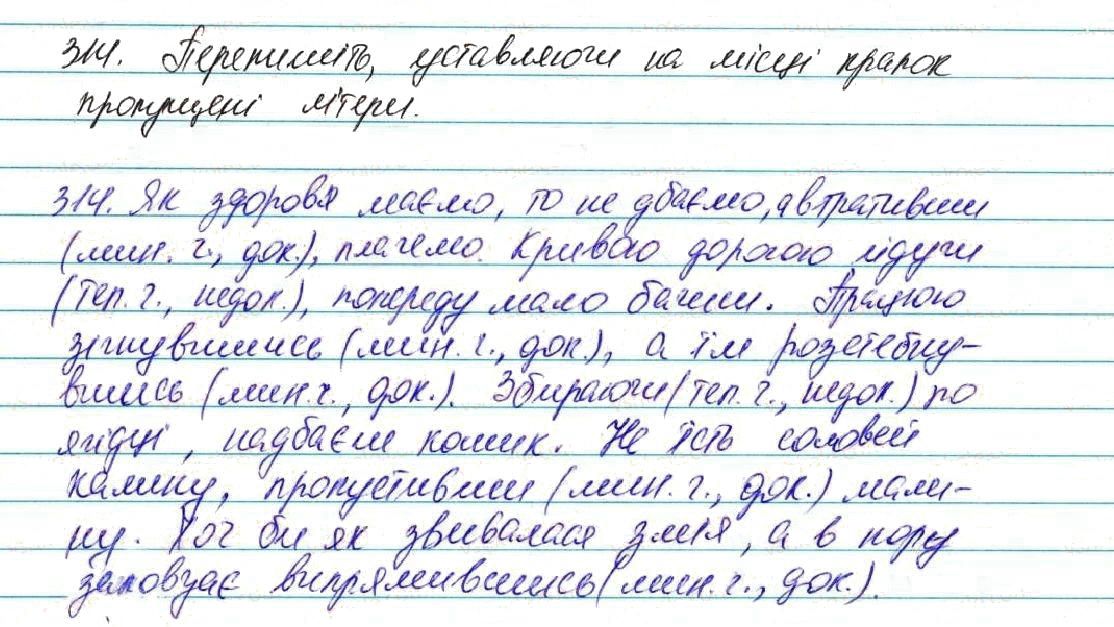 314. Перепишіть, уставляючи на місці крапок
пропущені літери.
314. Як здоровя маємо, то не дбаємо, а втративши
(мин. ч., док.), плачемо. Кривою дорогою ідучи
(теп. ч., недок.), попереду мало бачиш. Працюю
зігнувшись (мин. ч., док.), а їм розстебну-
вшись (мин. ч., док.). Збираючи (теп. ч., недок.) по
ягідці, надбаєш кошик. Не їсть соловей
калину, пропустивши (мин. ч., док.) мали-
ну. Хоч би як звивалася змія, а в нору
заповзає випрямившись (мин. ч., док.).